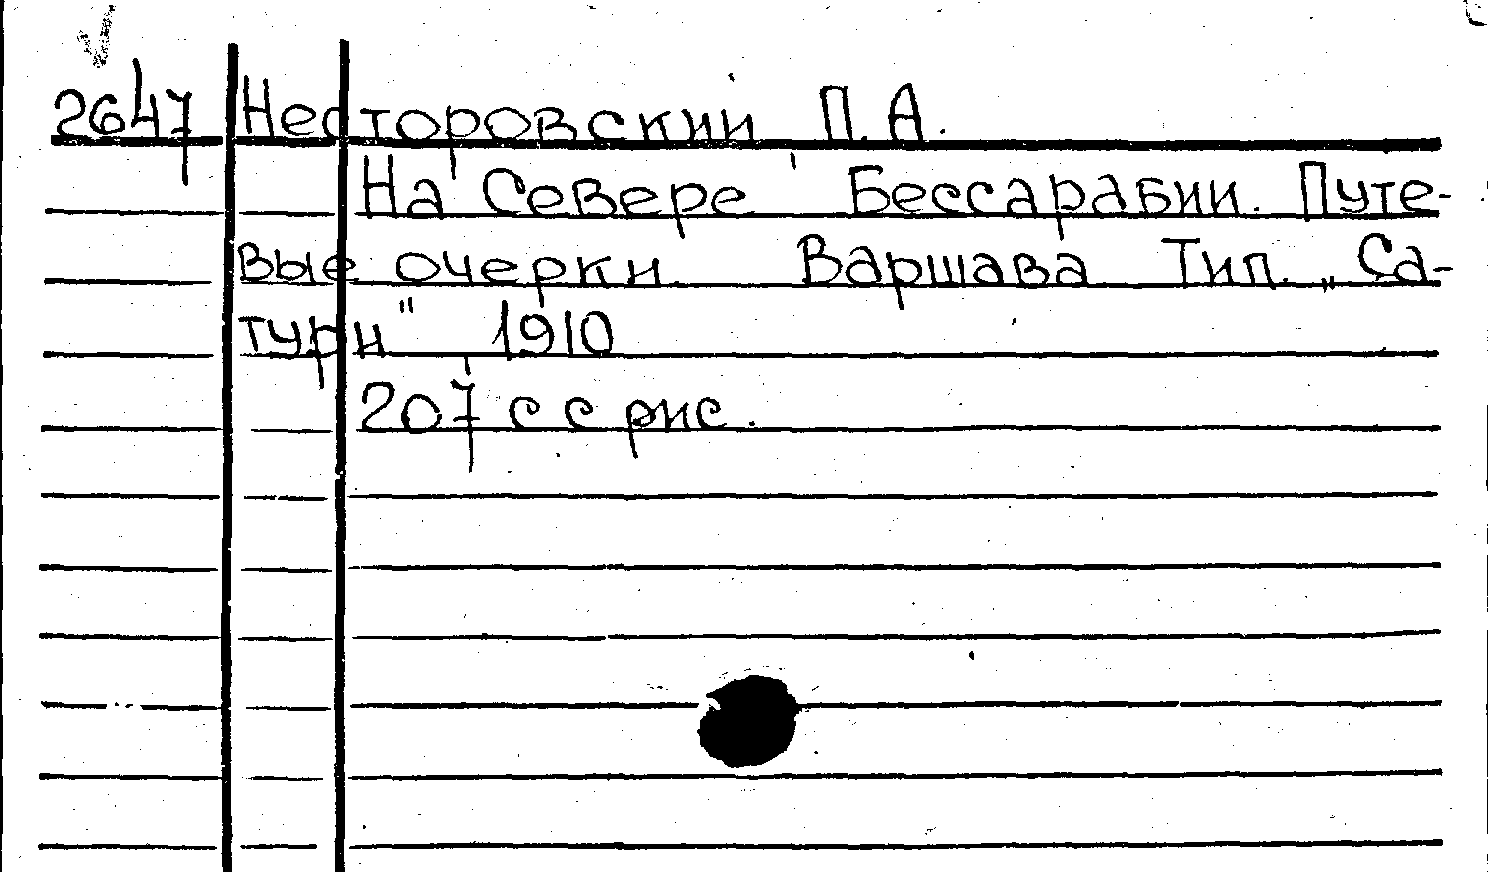 2647 Несторовский П. А.
На Севере Бессарабии. Путе-
вые очерки. Варшава Тип. „Са-
турн" 1910
207 с с рис.